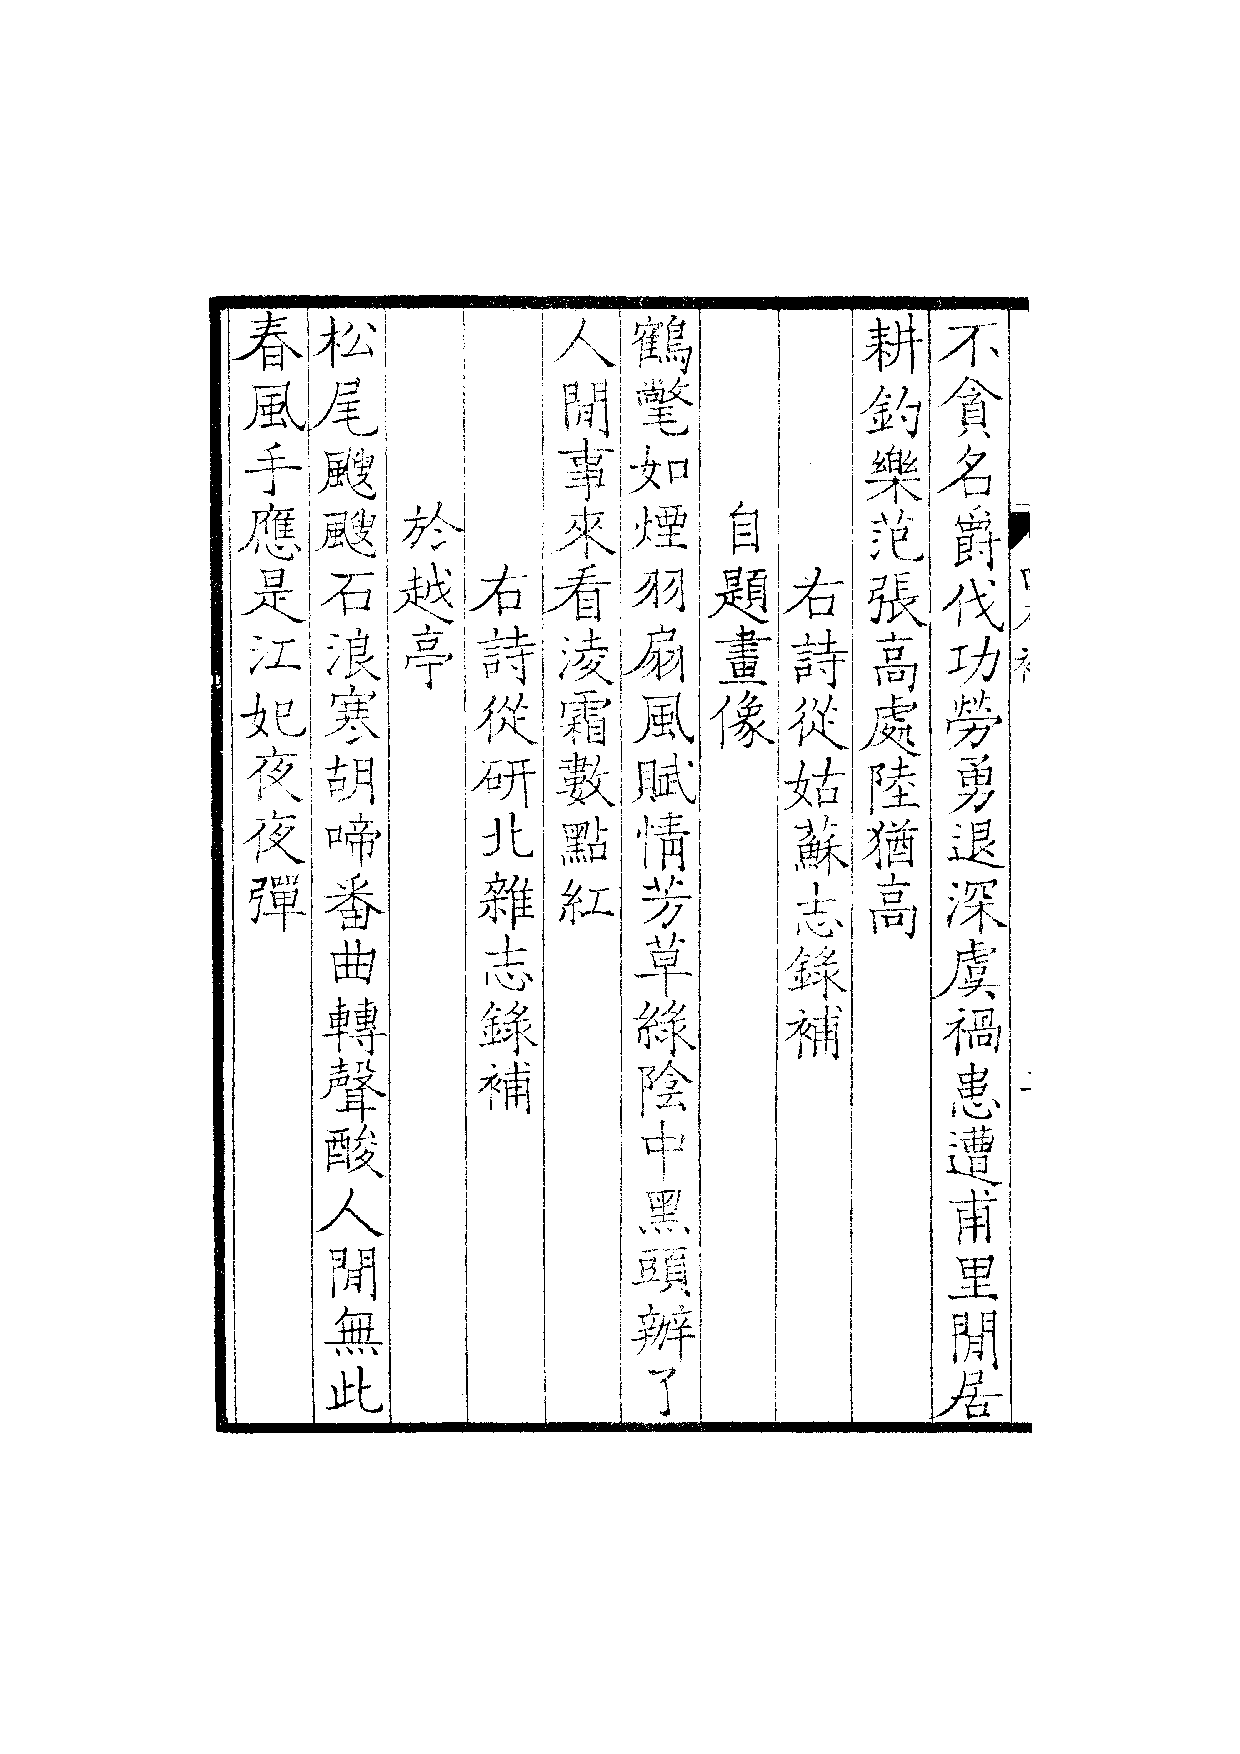 不貪名爵伐功勞勇退深虞禍患遭甫里閒居
耕釣樂范張高處陸猶高
右詩從姑蘇志錄補
自題畫像
鶴氅如煙羽扇風賦情芳草綠陰中黑頭辦了
人閒事來看淩霜數點紅
右詩從硏北雜志錄補
於越亭
松尾颼颼石浪寒胡啼番曲轉聲酸人閒無此
春風手應是江妃夜夜彈